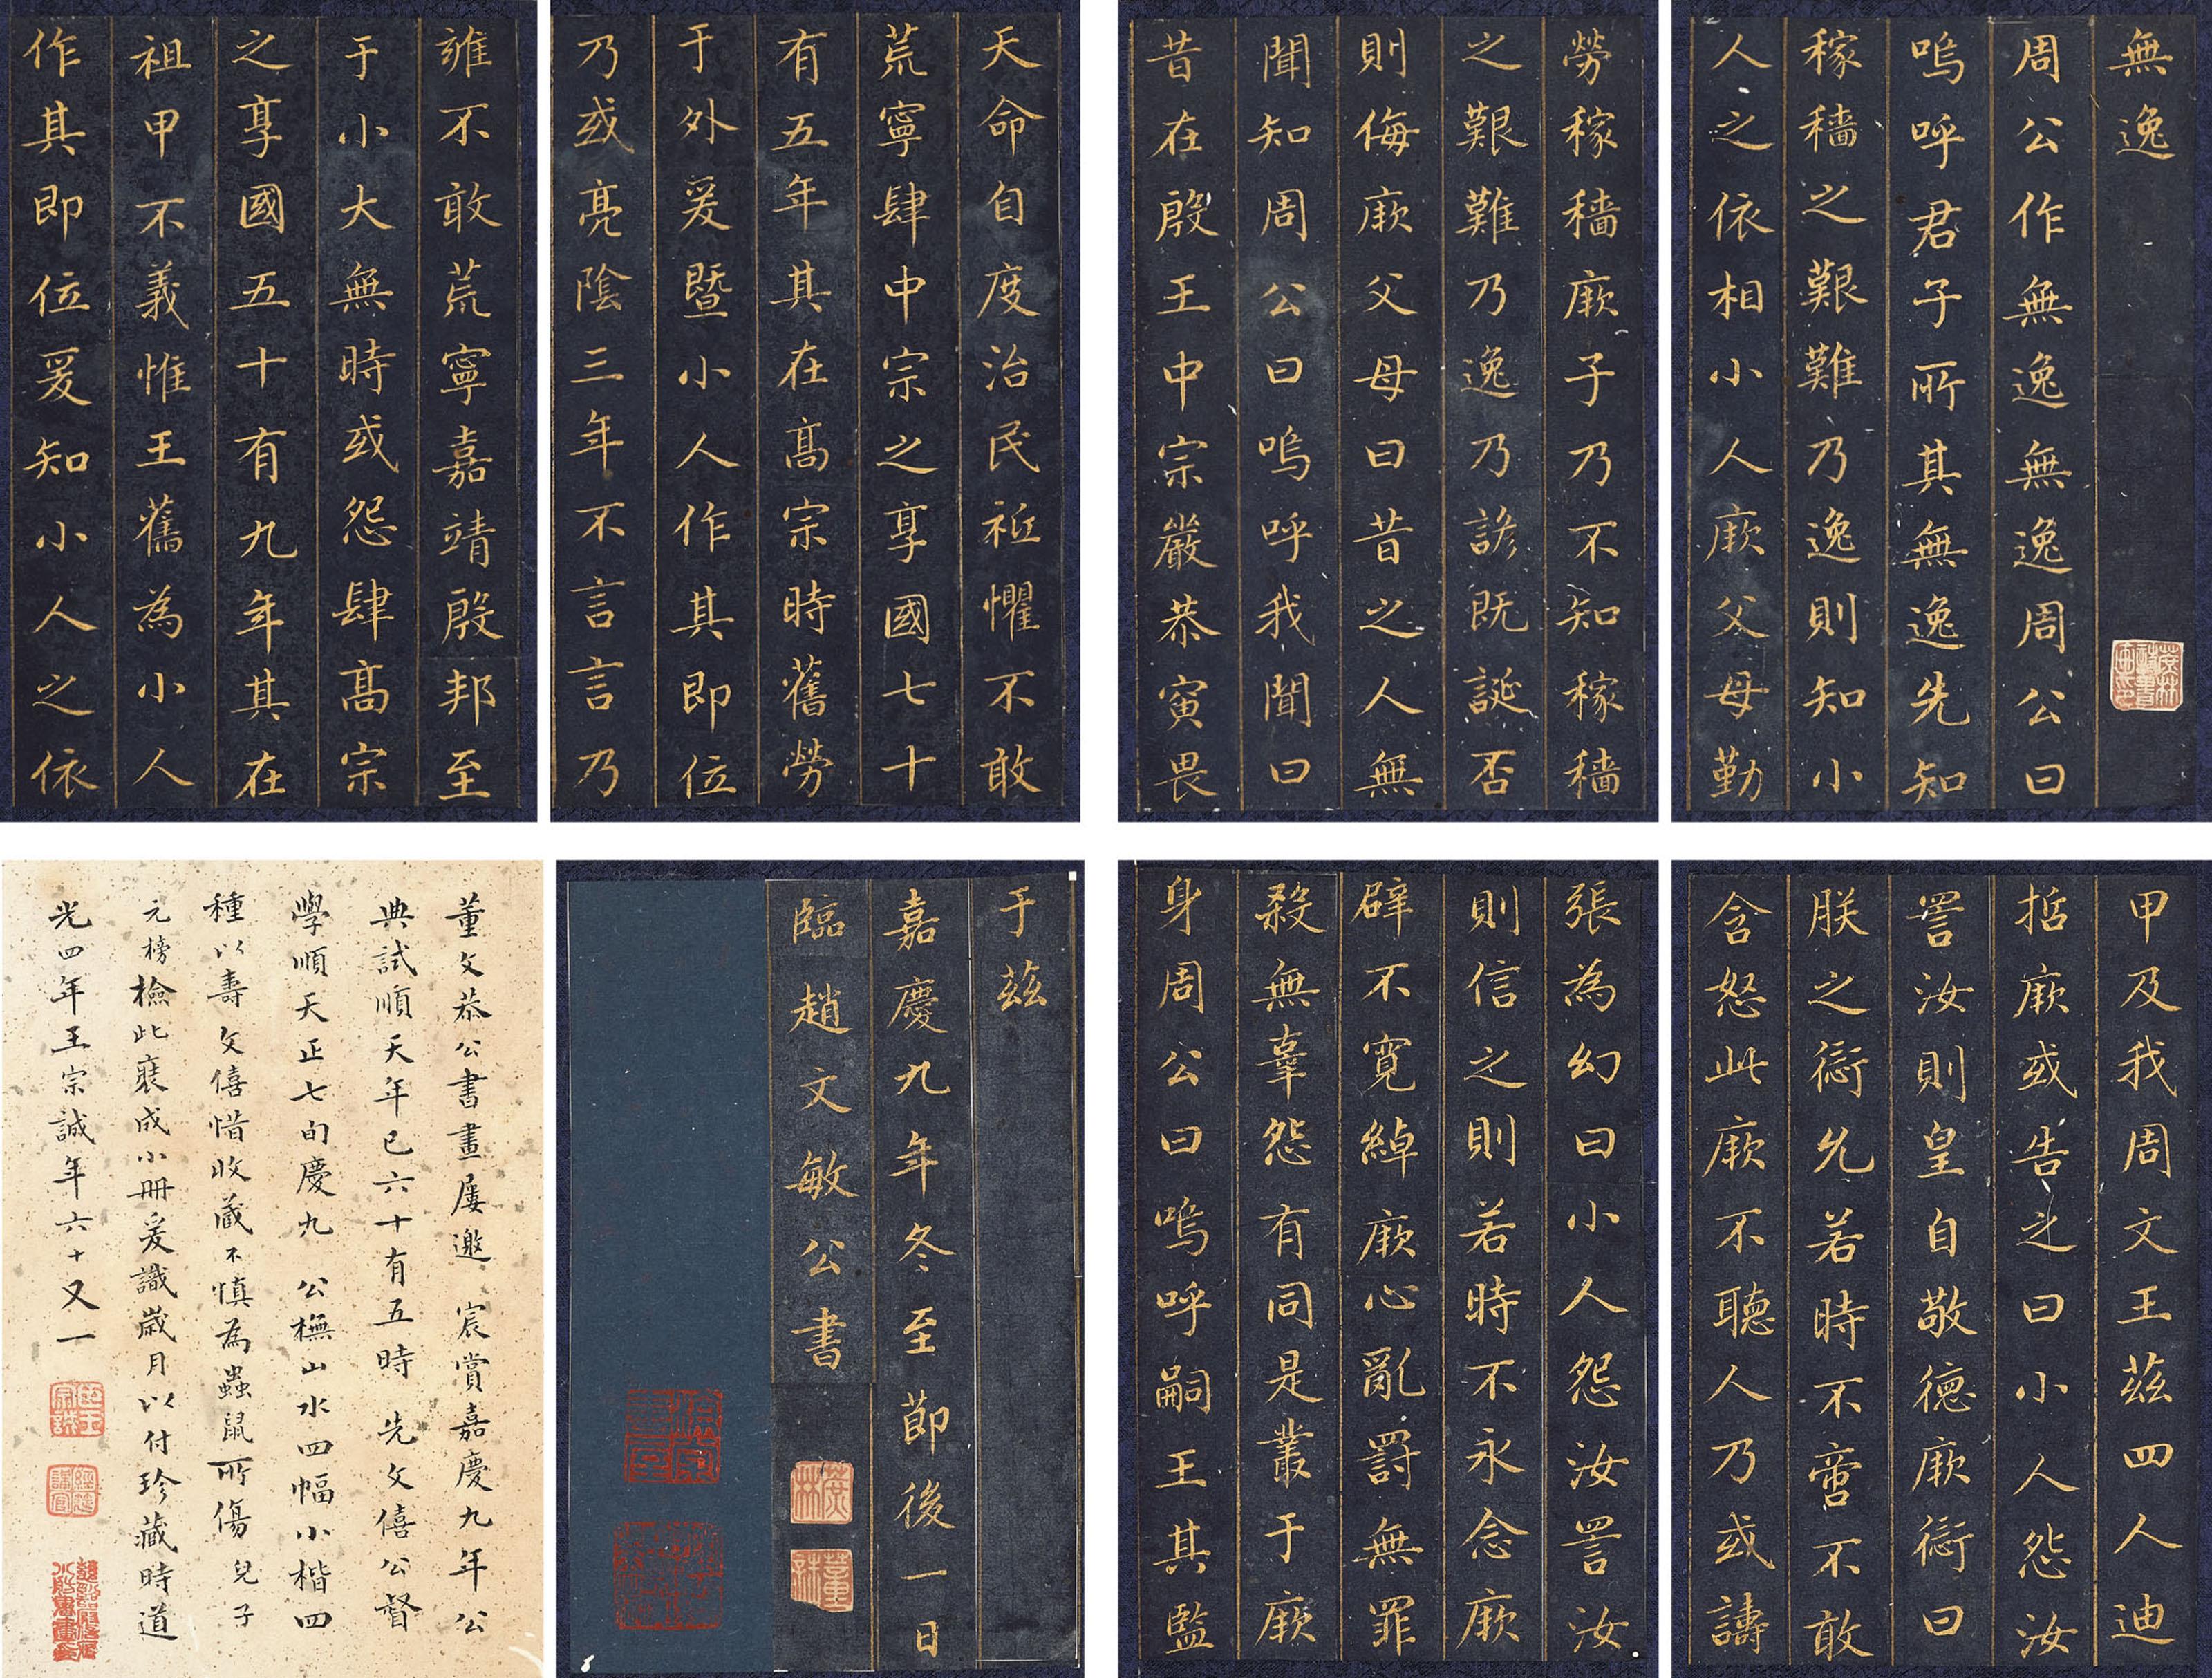 無逸
周公作無逸無逸周公曰
嗚呼君子所其無逸先知
稼穡之艱難乃逸則知小
人之依相小人厥父母勤
勞稼穡厥子乃不知稼穡
之艱難乃逸乃諺既誕否
則侮厥父母曰昔之人無
聞知周公曰嗚呼我聞曰
昔在殷王中宗嚴恭寅畏
天命自度治民祗懼不敢
荒寧肆中宗之享國七十
有五年其在高宗時舊勞
于外爰暨小人作其即位
乃或亮陰三年不言言乃
雍不敢荒寧嘉靖殷邦至
于小大無時或怨肆高宗
之享國五十有九年其在
祖甲不義惟王舊為小人
作其即位爰知小人之依
甲及我周文王茲四人迪
哲厥或告之曰小人怨汝
詈汝則皇自敬德厥愆曰
朕之愆允若時不啻不敢
含怒此厥不聽人乃或譸
張為幻曰小人怨汝詈汝
則信之則若時不永念厥
辟不寬綽厥心亂罰無罪
殺無辜怨有同是叢于厥
身周公曰嗚呼嗣王其監
于茲
嘉慶九年冬至節後一日
臨趙文敏公書
董文恭公書畫屢邀 宸賞嘉慶九年公
典試順天年已六十有五時 先文僖公督
學順天正七旬慶九 公橅山水四幅小楷四
種以壽文僖惜收藏不慎為蟲鼠所傷兒子
元榜檢此裝成小冊爰識歲月以付珍藏時道
光四年王宗誠年六十又一